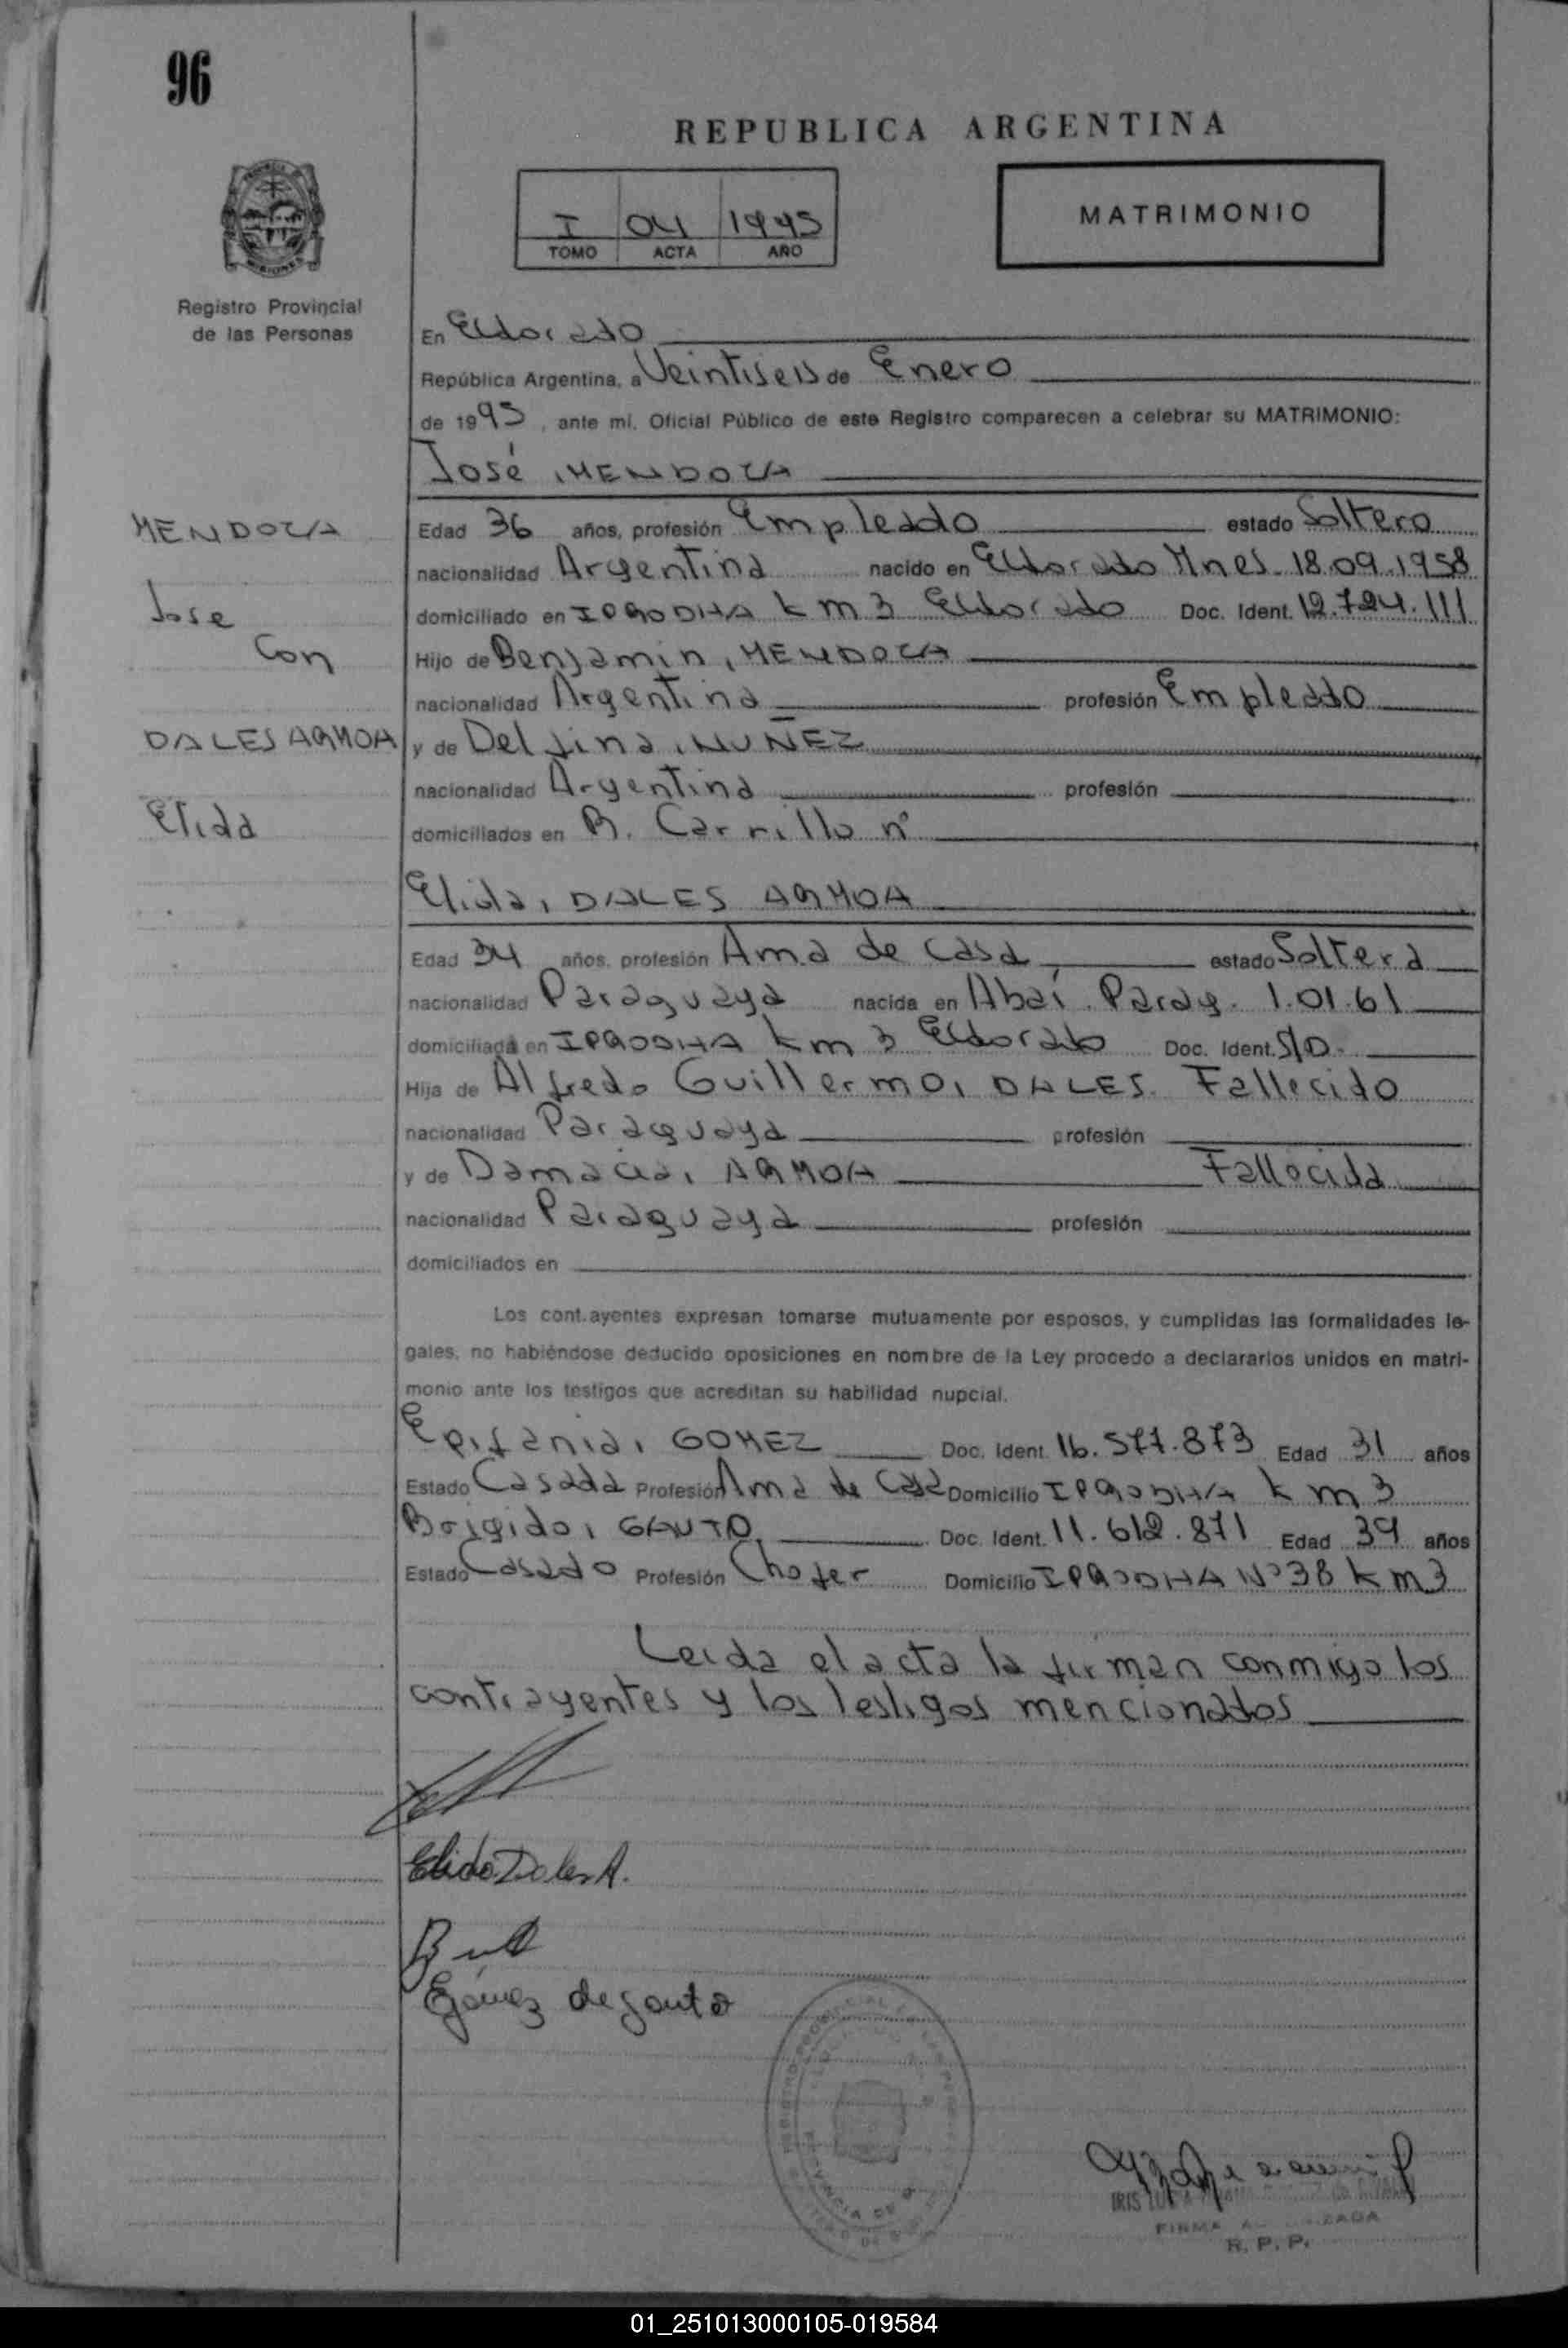 96
REPUBLICA ARGENTINA
I 04 1995
TOMO ACTA AÑO
MATRIMONIO
Registro Provincial
de las Personas
En Eldorado
República Argentina, a Veintiseis de Enero
de 1995, ante mí, Oficial Público de este Registro comparecen a celebrar su MATRIMONIO:
José, MENDOZA
MENDOZA
Jose
Con
DALES ARMOA
Elida
Edad 36 años, profesión Empleado estado Soltero
nacionalidad Argentina nacido en Eldorado Mnes. 18.09.1958
domiciliado en IPRODHA km 3 Eldorado Doc. Ident. 12.724.111
Hijo de Benjamin, MENDOZA
nacionalidad Argentina profesión Empleado
y de Delfina, NUÑEZ
nacionalidad Argentina profesión
domiciliados en R. Carrillo nº
Elida, DALES ARMOA
Edad 34 años, profesión Ama de Casa estado Soltera
nacionalidad Paraguaya nacida en Abaí. Parag. 1.01.61
domiciliada en IPRODHA km 3 Eldorado Doc. Ident. S/D.
Hija de Alfredo Guillermo, DALES. Fallecido
nacionalidad Paraguaya profesión
y de Damacia, ARMOA Fallecida
nacionalidad Paraguaya profesión
domiciliados en
Los cont.ayentes expresan tomarse mutuamente por esposos, y cumplidas las formalidades le-
gales, no habiéndose deducido oposiciones en nombre de la Ley procedo a declararlos unidos en matri-
monio ante los testigos que acreditan su habilidad nupcial.
Epifania, GOMEZ Doc. Ident. 16.577.873 Edad 31 años
Estado Casada Profesión Ama de Casa Domicilio IPRODHA km 3
Brígido, GAUTO Doc. Ident. 11.612.871 Edad 39 años
Estado Casado Profesión Chofer Domicilio IPRODHA Nº 38 km 3
Leida el acta la firman conmigo los
contrayentes y los testigos mencionados
Elida Dales A.
Gómez de Gauto
IRIS
FIRMA
R. P. P.
01_251013000105-019584